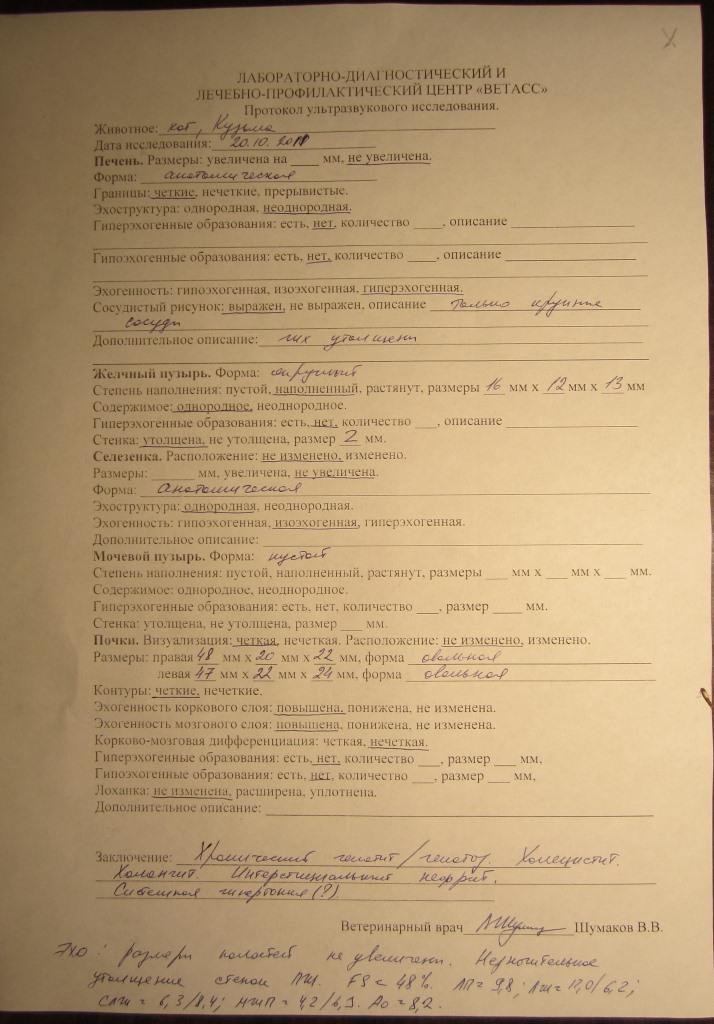 ЛАБОРАТОРНО-ДИАГНОСТИЧЕСКИЙ И
ЛЕЧЕБНО-ПРОФИЛАКТИЧЕСКИЙ ЦЕНТР «ВЕТАСС»
Протокол ультразвукового исследования.
Животное: кот, Кузьма
Дата исследования: 20.10.2011
Печень. Размеры: увеличена на ____ мм, не увеличена.
Форма: анатомическая
Границы: четкие, нечеткие, прерывистые.
Эхоструктура: однородная, неоднородная.
Гиперэхогенные образования: есть, нет, количество ____, описание
Гипоэхогенные образования: есть, нет, количество ____, описание
Эхогенность: гипоэхогенная, изоэхогенная, гиперэхогенная.
Сосудистый рисунок: выражен, не выражен, описание только крупные
сосуды
Дополнительное описание: жих утолщены
Желчный пузырь. Форма: округлый
Степень наполнения: пустой, наполненный, растянут, размеры 16 мм х 12 мм х 13 мм
Содержимое: однородное, неоднородное.
Гиперэхогенные образования: есть, нет, количество ___, описание
Стенка: утолщена, не утолщена, размер 2 мм.
Селезенка. Расположение: не изменено, изменено.
Размеры: ______ мм, увеличена, не увеличена.
Форма: Анатомическая
Эхоструктура: однородная, неоднородная.
Эхогенность: гипоэхогенная, изоэхогенная, гиперэхогенная.
Дополнительное описание:
Мочевой пузырь. Форма: пустой
Степень наполнения: пустой, наполненный, растянут, размеры ___ мм х ___ мм х ___ мм.
Содержимое: однородное, неоднородное.
Гиперэхогенные образования: есть, нет, количество ___, размер ___ мм.
Стенка: утолщена, не утолщена, размер ___ мм.
Почки. Визуализация: четкая, нечеткая. Расположение: не изменено, изменено.
Размеры: правая 48 мм х 20 мм х 22 мм, форма овальная
левая 47 мм х 22 мм х 24 мм, форма овальная
Контуры: четкие, нечеткие.
Эхогенность коркового слоя: повышена, понижена, не изменена.
Эхогенность мозгового слоя: повышена, понижена, не изменена.
Корково-мозговая дифференциация: четкая, нечеткая.
Гиперэхогенные образования: есть, нет, количество ___, размер ___ мм,
Гипоэхогенные образования: есть, нет, количество ___, размер ___ мм,
Лоханка: не изменена, расширена, уплотнена.
Дополнительное описание:
Заключение: Хронический гепатит/гепатоз. Холецистит.
Холангит. Интерстициальный нефрит.
Системная гипертония (?)
Ветеринарный врач Шумаков В.В.
Эхо: размеры полостей не увеличены. Незначительное
утолщение стенок ЛЖ. FS = 48%. ЛП = 9,8; ЛЖ = 17,0/6,2;
СЛЖ = 6,3/8,4; МЖП = 4,2/6,9. Ао = 8,2.